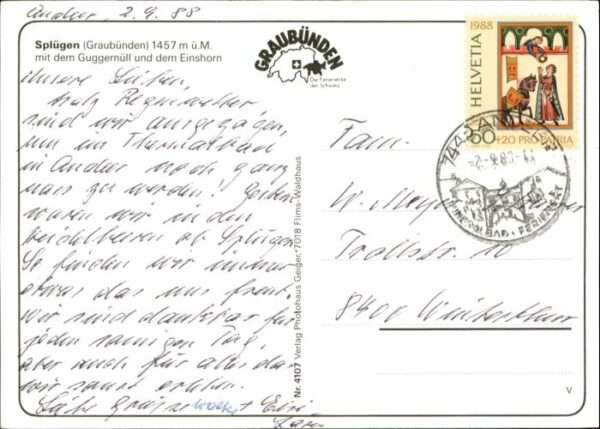 Andeer, 2.9.88
Splügen (Graubünden) 1457 m ü.M.
mit dem Guggernüll und dem Einshorn
GRAUBÜNDEN
Die Ferienecke
der Schweiz
Unsere Lieben,
trotz Regenwetter
sind wir ausgezogen,
um im Thermalbad
in Andeer noch ganz
nass zu werden! Gestern
waren wir in den
Heidelbeeren ob Splügen
So finden wir immer
etwas das uns freut.
Wir sind dankbar für
jeden sonnigen Tag,
aber auch für alles das
wir sonst erleben.
Liebe Grüsse Walter + Erni
Nr. 4107 Verlag Photohaus Geiger, 7018 Flims-Waldhaus
HELVETIA
1988
50+20 PRO PATRIA
7440 ANDEER
-2.-9.88-11
THERMALBAD + FERIENORT
Fam.
W. Meyer
Trollstr. 10
8400 Winterthur
V